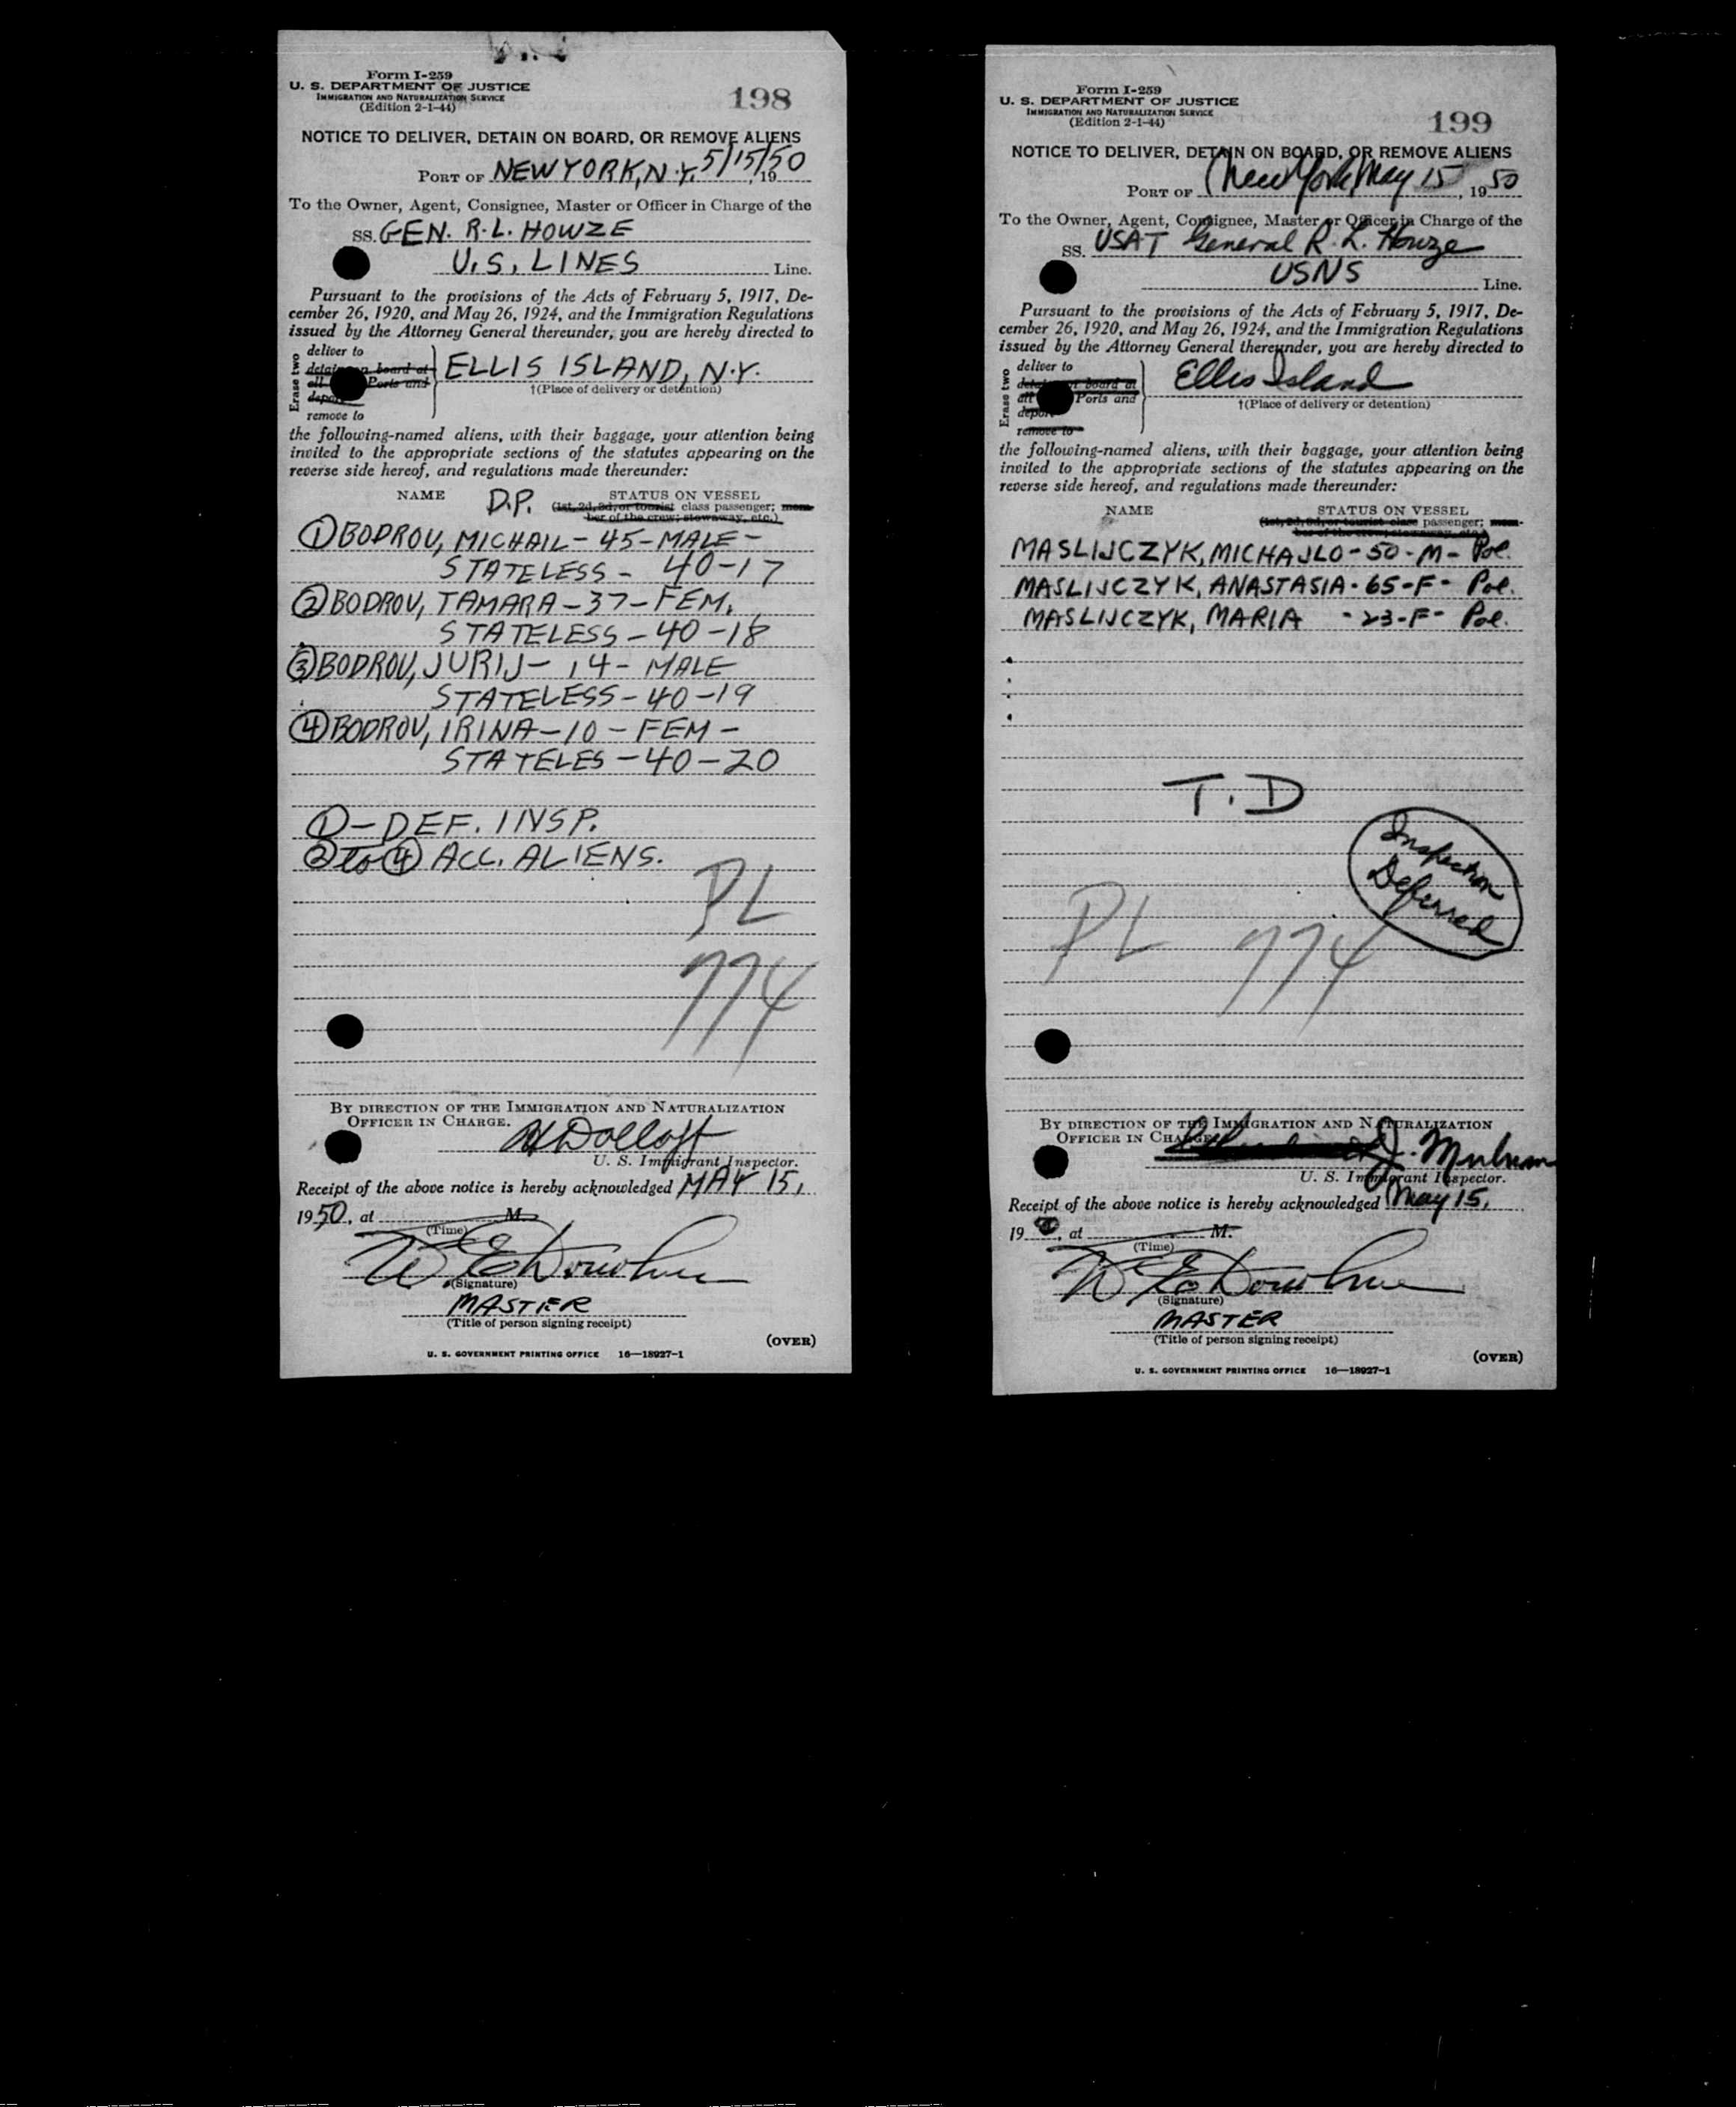 Form I-259
U. S. DEPARTMENT OF JUSTICE
IMMIGRATION AND NATURALIZATION SERVICE
(Edition 2-1-44)
198
NOTICE TO DELIVER, DETAIN ON BOARD, OR REMOVE ALIENS
PORT OF NEW YORK, N.Y. 5/15/50, 19
To the Owner, Agent, Consignee, Master or Officer in Charge of the
SS. GEN. R.L. HOWZE
U.S. LINES Line.
Pursuant to the provisions of the Acts of February 5, 1917, De-
cember 26, 1920, and May 26, 1924, and the Immigration Regulations
issued by the Attorney General thereunder, you are hereby directed to
Erase two
deliver to
detain on board at
all Ports and
depor
remove to
ELLIS ISLAND, N.Y.
†(Place of delivery or detention)
the following-named aliens, with their baggage, your attention being
invited to the appropriate sections of the statutes appearing on the
reverse side hereof, and regulations made thereunder:
NAME D.P. STATUS ON VESSEL
(1st, 2d, 3d, or tourist class passenger; mem-
ber of the crew; stowaway, etc.)
① BODROV, MICHAIL - 45 - MALE -
STATELESS - 40-17
② BODROV, TAMARA - 37 - FEM.
STATELESS - 40-18
③ BODROV, JURIJ - 14 - MALE
STATELESS - 40-19
④ BODROV, IRINA - 10 - FEM -
STATELES - 40-20
① - DEF. INSP.
② to ④ ACC. ALIENS.
PL
774
BY DIRECTION OF THE IMMIGRATION AND NATURALIZATION
OFFICER IN CHARGE.
H Dolloff
U. S. Immigrant Inspector.
Receipt of the above notice is hereby acknowledged MAY 15,
1950, at M.
(Time)
W E Donohue
(Signature)
MASTER
(Title of person signing receipt)
(OVER)
U. S. GOVERNMENT PRINTING OFFICE 16—18927-1
Form I-259
U. S. DEPARTMENT OF JUSTICE
IMMIGRATION AND NATURALIZATION SERVICE
(Edition 2-1-44)
199
NOTICE TO DELIVER, DETAIN ON BOARD, OR REMOVE ALIENS
PORT OF New York May 15, 1950
To the Owner, Agent, Consignee, Master or Officer in Charge of the
SS. USAT General R. L. Howze
USNS Line.
Pursuant to the provisions of the Acts of February 5, 1917, De-
cember 26, 1920, and May 26, 1924, and the Immigration Regulations
issued by the Attorney General thereunder, you are hereby directed to
Erase two
deliver to
detain on board at
all Ports and
depor
remove to
Ellis Island
†(Place of delivery or detention)
the following-named aliens, with their baggage, your attention being
invited to the appropriate sections of the statutes appearing on the
reverse side hereof, and regulations made thereunder:
NAME STATUS ON VESSEL
(1st, 2d, 3d, or tourist class passenger; mem-
ber of the crew; stowaway, etc.)
MASLIJCZYK, MICHAJLO - 50 - M - Pol.
MASLIJCZYK, ANASTASIA - 65 - F - Pol.
MASLIJCZYK, MARIA - 23 - F - Pol.
T.D
Inspection
Deferred
PL 774
BY DIRECTION OF THE IMMIGRATION AND NATURALIZATION
OFFICER IN CHARGE.
U. S. Immigrant Inspector.
Receipt of the above notice is hereby acknowledged May 15,
19 , at M.
(Time)
W E Donohue
(Signature)
MASTER
(Title of person signing receipt)
(OVER)
U. S. GOVERNMENT PRINTING OFFICE 16—18927-1